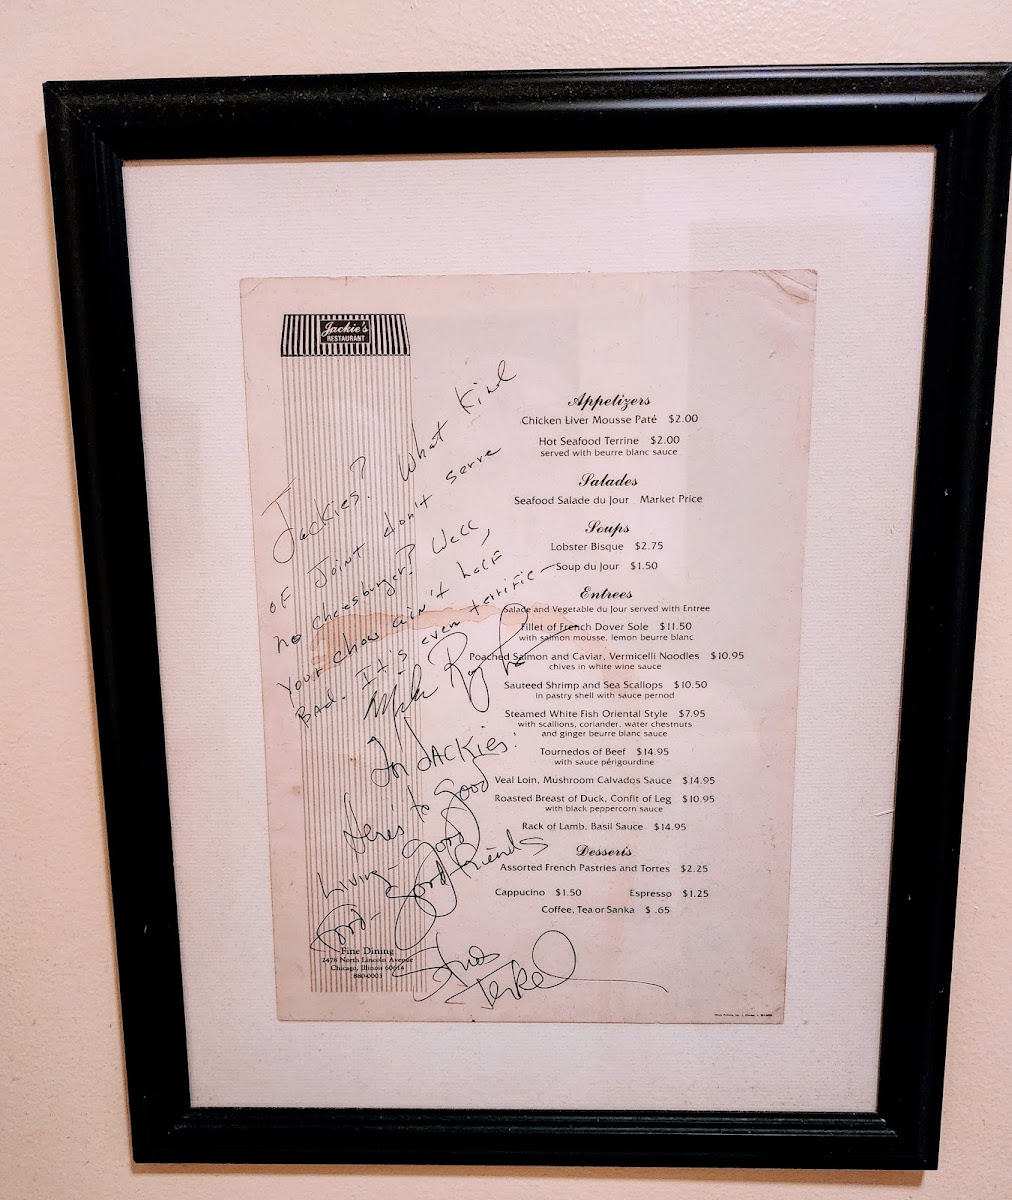 Jackie's
RESTAURANT
Jackies? What kind
of Joint don't serve
no cheesburger? Well,
your chow ain't half
BAd. It's even terrific—
Mike Royko
To JACKies!
Here's to good
Living—good
food—good friends
Studs
Terkel
Fine Dining
2478 North Lincoln Avenue
Chicago, Illinois 60614
880-0003
Appetizers
Chicken Liver Mousse Paté $2.00
Hot Seafood Terrine $2.00
served with beurre blanc sauce
Salades
Seafood Salade du Jour Market Price
Soups
Lobster Bisque $2.75
Soup du Jour $1.50
Entrees
Salade and Vegetable du Jour served with Entree
Fillet of French Dover Sole $11.50
with salmon mousse, lemon beurre blanc
Poached Salmon and Caviar, Vermicelli Noodles $10.95
chives in white wine sauce
Sauteed Shrimp and Sea Scallops $10.50
in pastry shell with sauce pernod
Steamed White Fish Oriental Style $7.95
with scallions, coriander, water chestnuts
and ginger beurre blanc sauce
Tournedos of Beef $14.95
with sauce périgourdine
Veal Loin, Mushroom Calvados Sauce $14.95
Roasted Breast of Duck, Confit of Leg $10.95
with black peppercorn sauce
Rack of Lamb, Basil Sauce $14.95
Desserts
Assorted French Pastries and Tortes $2.25
Cappucino $1.50 Espresso $1.25
Coffee, Tea or Sanka $ .65